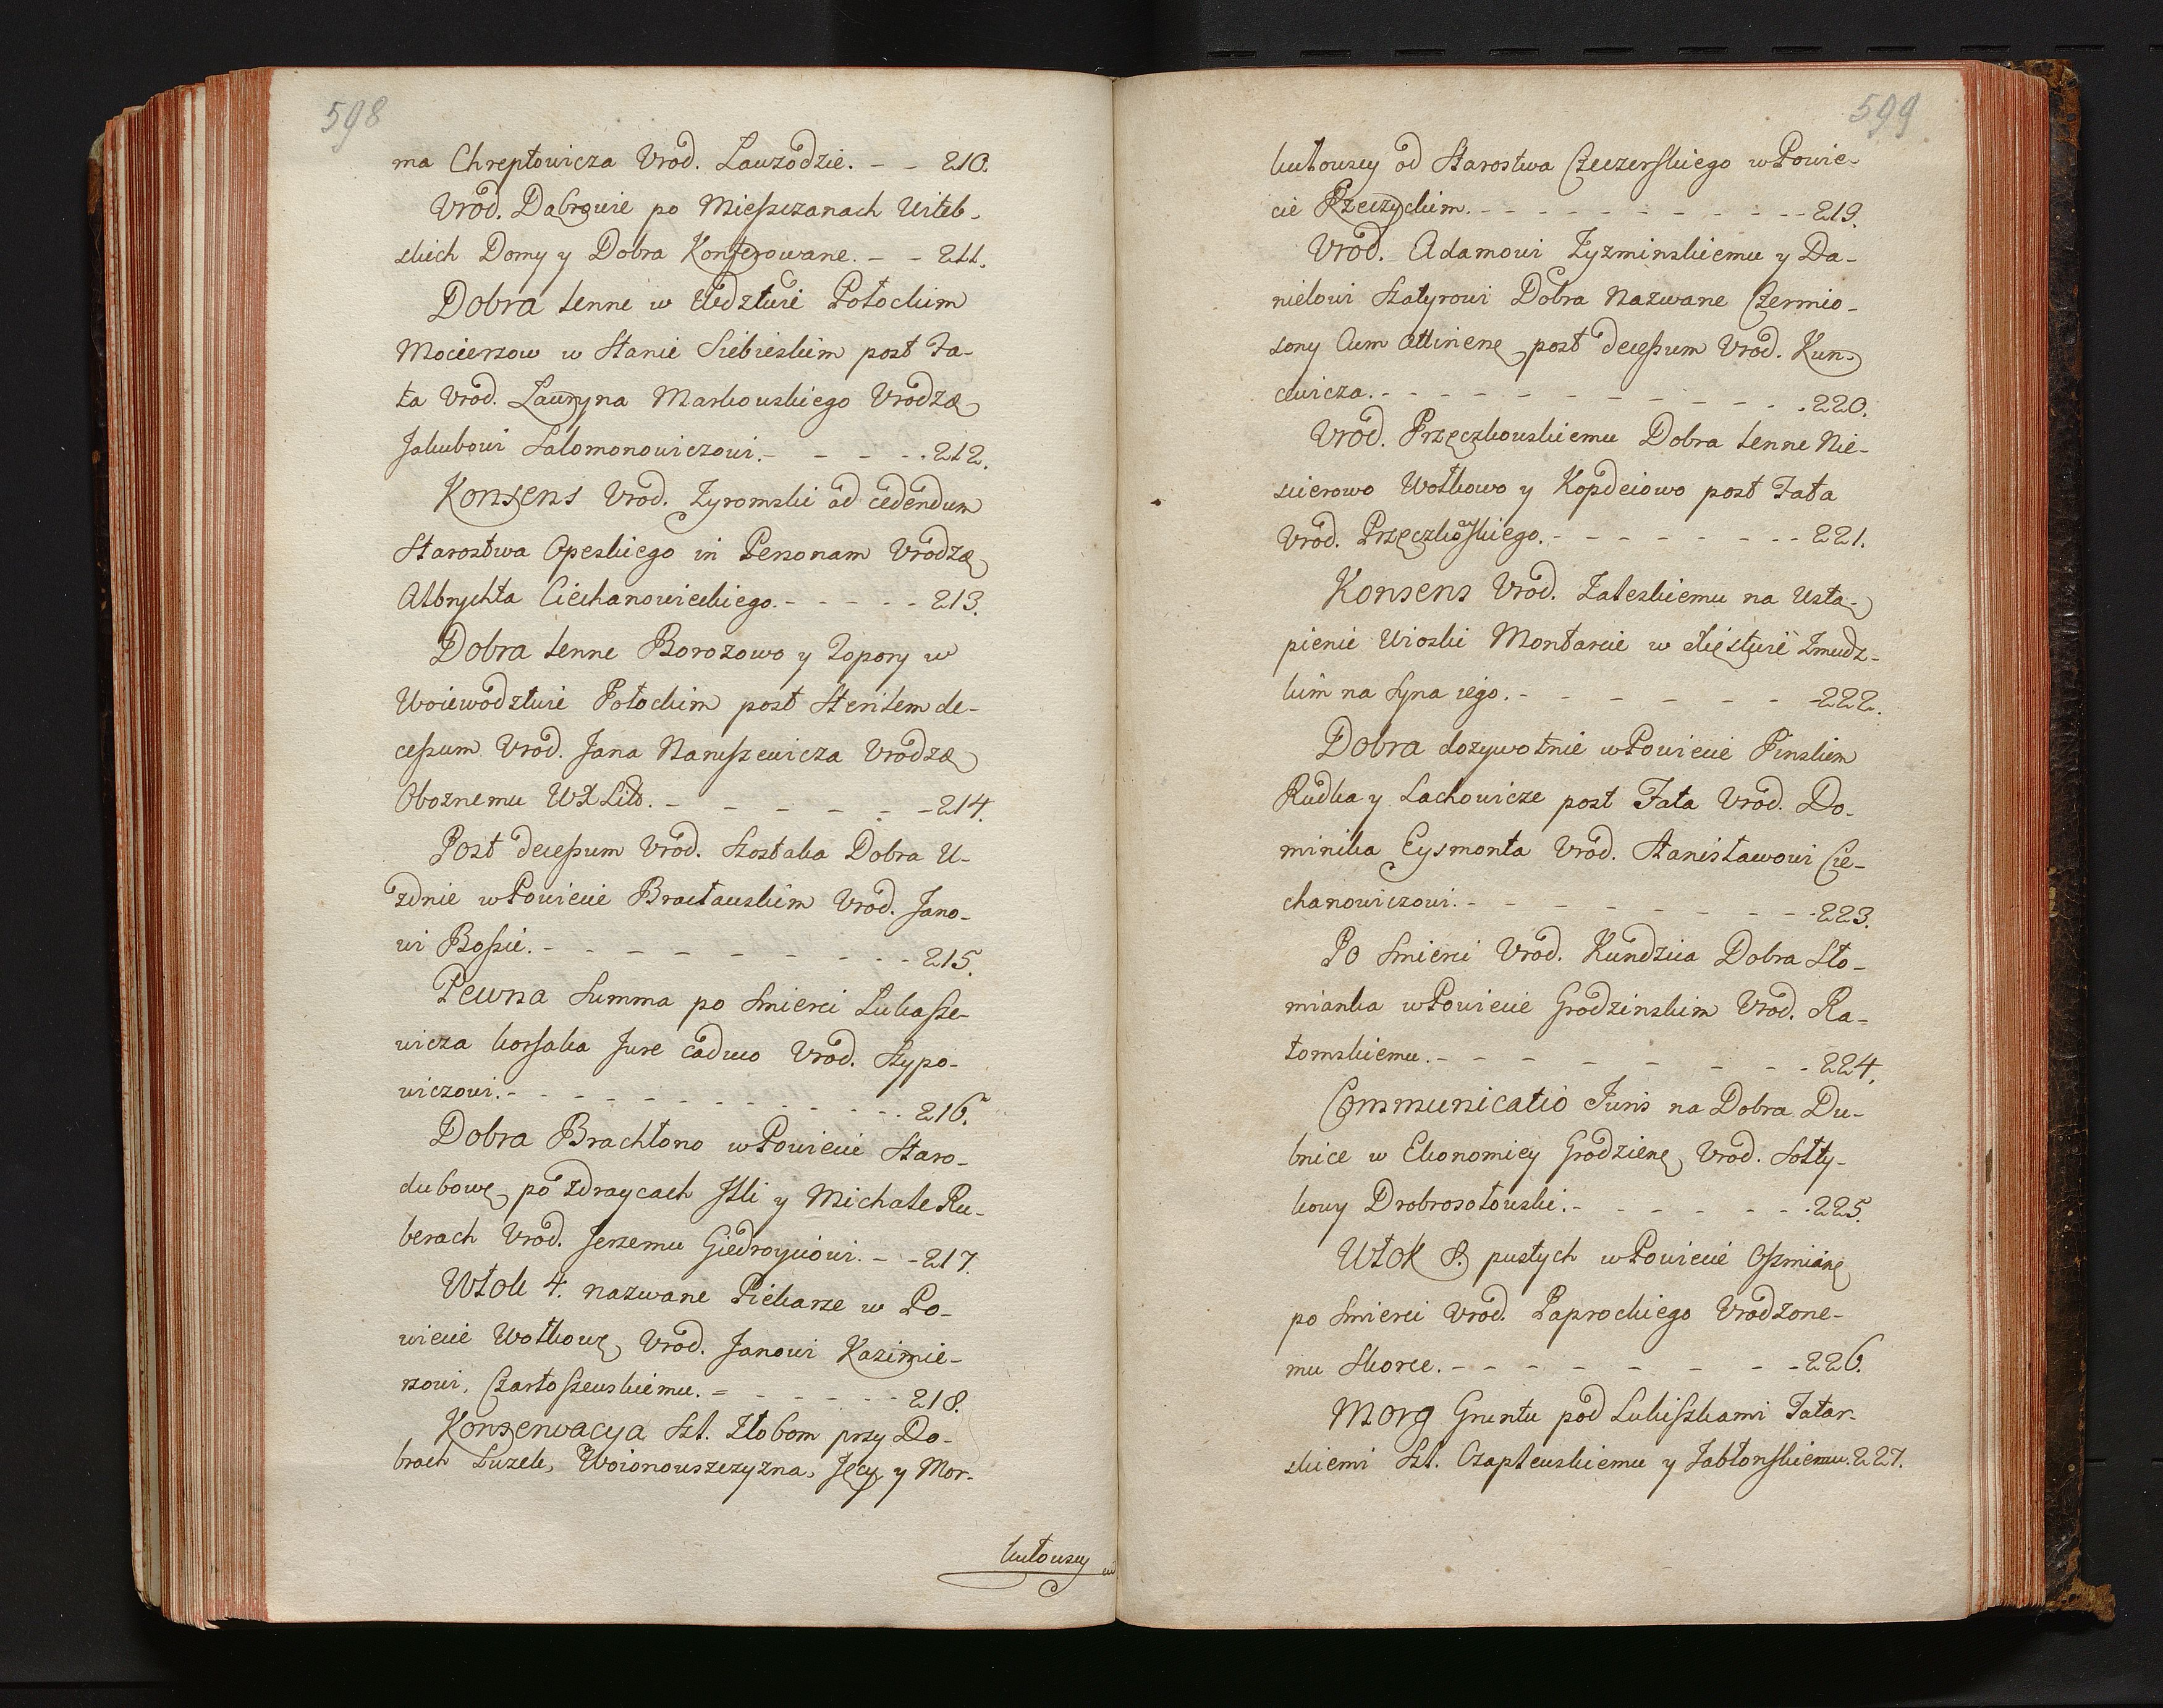 598
ma Chreptowicza Vrod. Lauzodzie. - - 210.
Vrod. Dąbrowie po Mieszczanach Uiteb-
skich Domy y Dobra Konferowane. - - 211.
Dobra lenne w Wdztwie Połockim
Mocierzow w Stanie Siebieskim post Fa-
ta Vrod. Lauryna Markowskiego Vrodzo
Jakubowi Salomonowiczowi. - - - - 212.
Konsens Vrod. Zyromski ad cedendum
Starostwa Opeskiego in Personam Vrodzo
Albrychta Ciechanowieckiego. - - - - - 213.
Dobra lenne Borozowo y Zopory w
Woiewodztwie Połockim post Sterilem de-
cessum Vrod. Jana Naruszewicza Vrodzo
Oboznemu WXLitt. - - - - - - 214.
Post decessum Vrod. Szostaka Dobra U-
zdnie w Powiecie Bracławskim Vrod. Jano-
wi Bossie. - - - - - - - - - 215.
Pewna Summa po Smierci Lukasze-
wicza korsaka Jure caduco Vrod. Szypo-
wiczowi. - - - - - - - - - - - 216.
Dobra Brachłono w Powiecie Staro-
dubowę po Zdraycach Jlli y Michale Ru-
berach Vrod. Jerzemu Giedroyciowi. - - 217.
Włok 4. nazwane Piekarze w Po-
wiecie Wołkowę Vrod. Janowi Kazimie-
rzowi, Czartoszewskiemu. = - - - - - 218.
Konserwacya Szl. Złobom przy Do-
brach Luzek, Woionowszczyzna, Jęcy y Mor-
kułowszy
599
kułowszy od Starostwa Czeczerskiego w Powie-
cie Rzeczyckim. - - - - - - - - - - - 219.
Vrod. Adamowi Zyzminskiemu y Da-
nielowi Szatyrowi Dobra Nazwane Czernio-
sony Cum attinenę post decessum Vrod. Kun-
cewicza. - - - - - - - - - - - 220.
Vrod. Przęczkowskiemu Dobra lenne Nie-
scierowo Wołkowo y Kopdeiowo post Fata
Vrod. Przęczkoskiego. - - - - - - - - 221.
Konsens Vrod. Zaleskiemu na Usta-
pienie Wioski Montarcie w Xięstwie Zmudz-
kim na Syna iego. - - - - - - - 222.
Dobra dozywotnie w Powiecie Pinskim
Rudka y Lachowicze post Fata Vrod. Do-
minika Eysmonta Vrod. Stanisławowi Cie-
chanowiczowi. - - - - - - - - - 223.
Po Smierci Vrod. Kundzica Dobra Sło-
mianka w Powiecie Grodzinskim Vrod. Ra-
tomskiemu. - - - - - - - - 224.
Communicatio Juris na Dobra Du-
bnice w Ekonomiey Grodzienę Vrod. Sołty-
kowy Drobrosołowski. - - - - - - - 225.
Włok 8. pustych w Powiecie Oszmianę
po Smierci Vrod. Paprockiego Vrodzone-
mu Skorce. - - - - - - - - - 226.
Morg Gruntu pod Lukiszkami Tatar-
skiemi Szl. Czaplewskiemu y Jabłonskiemu. 227.